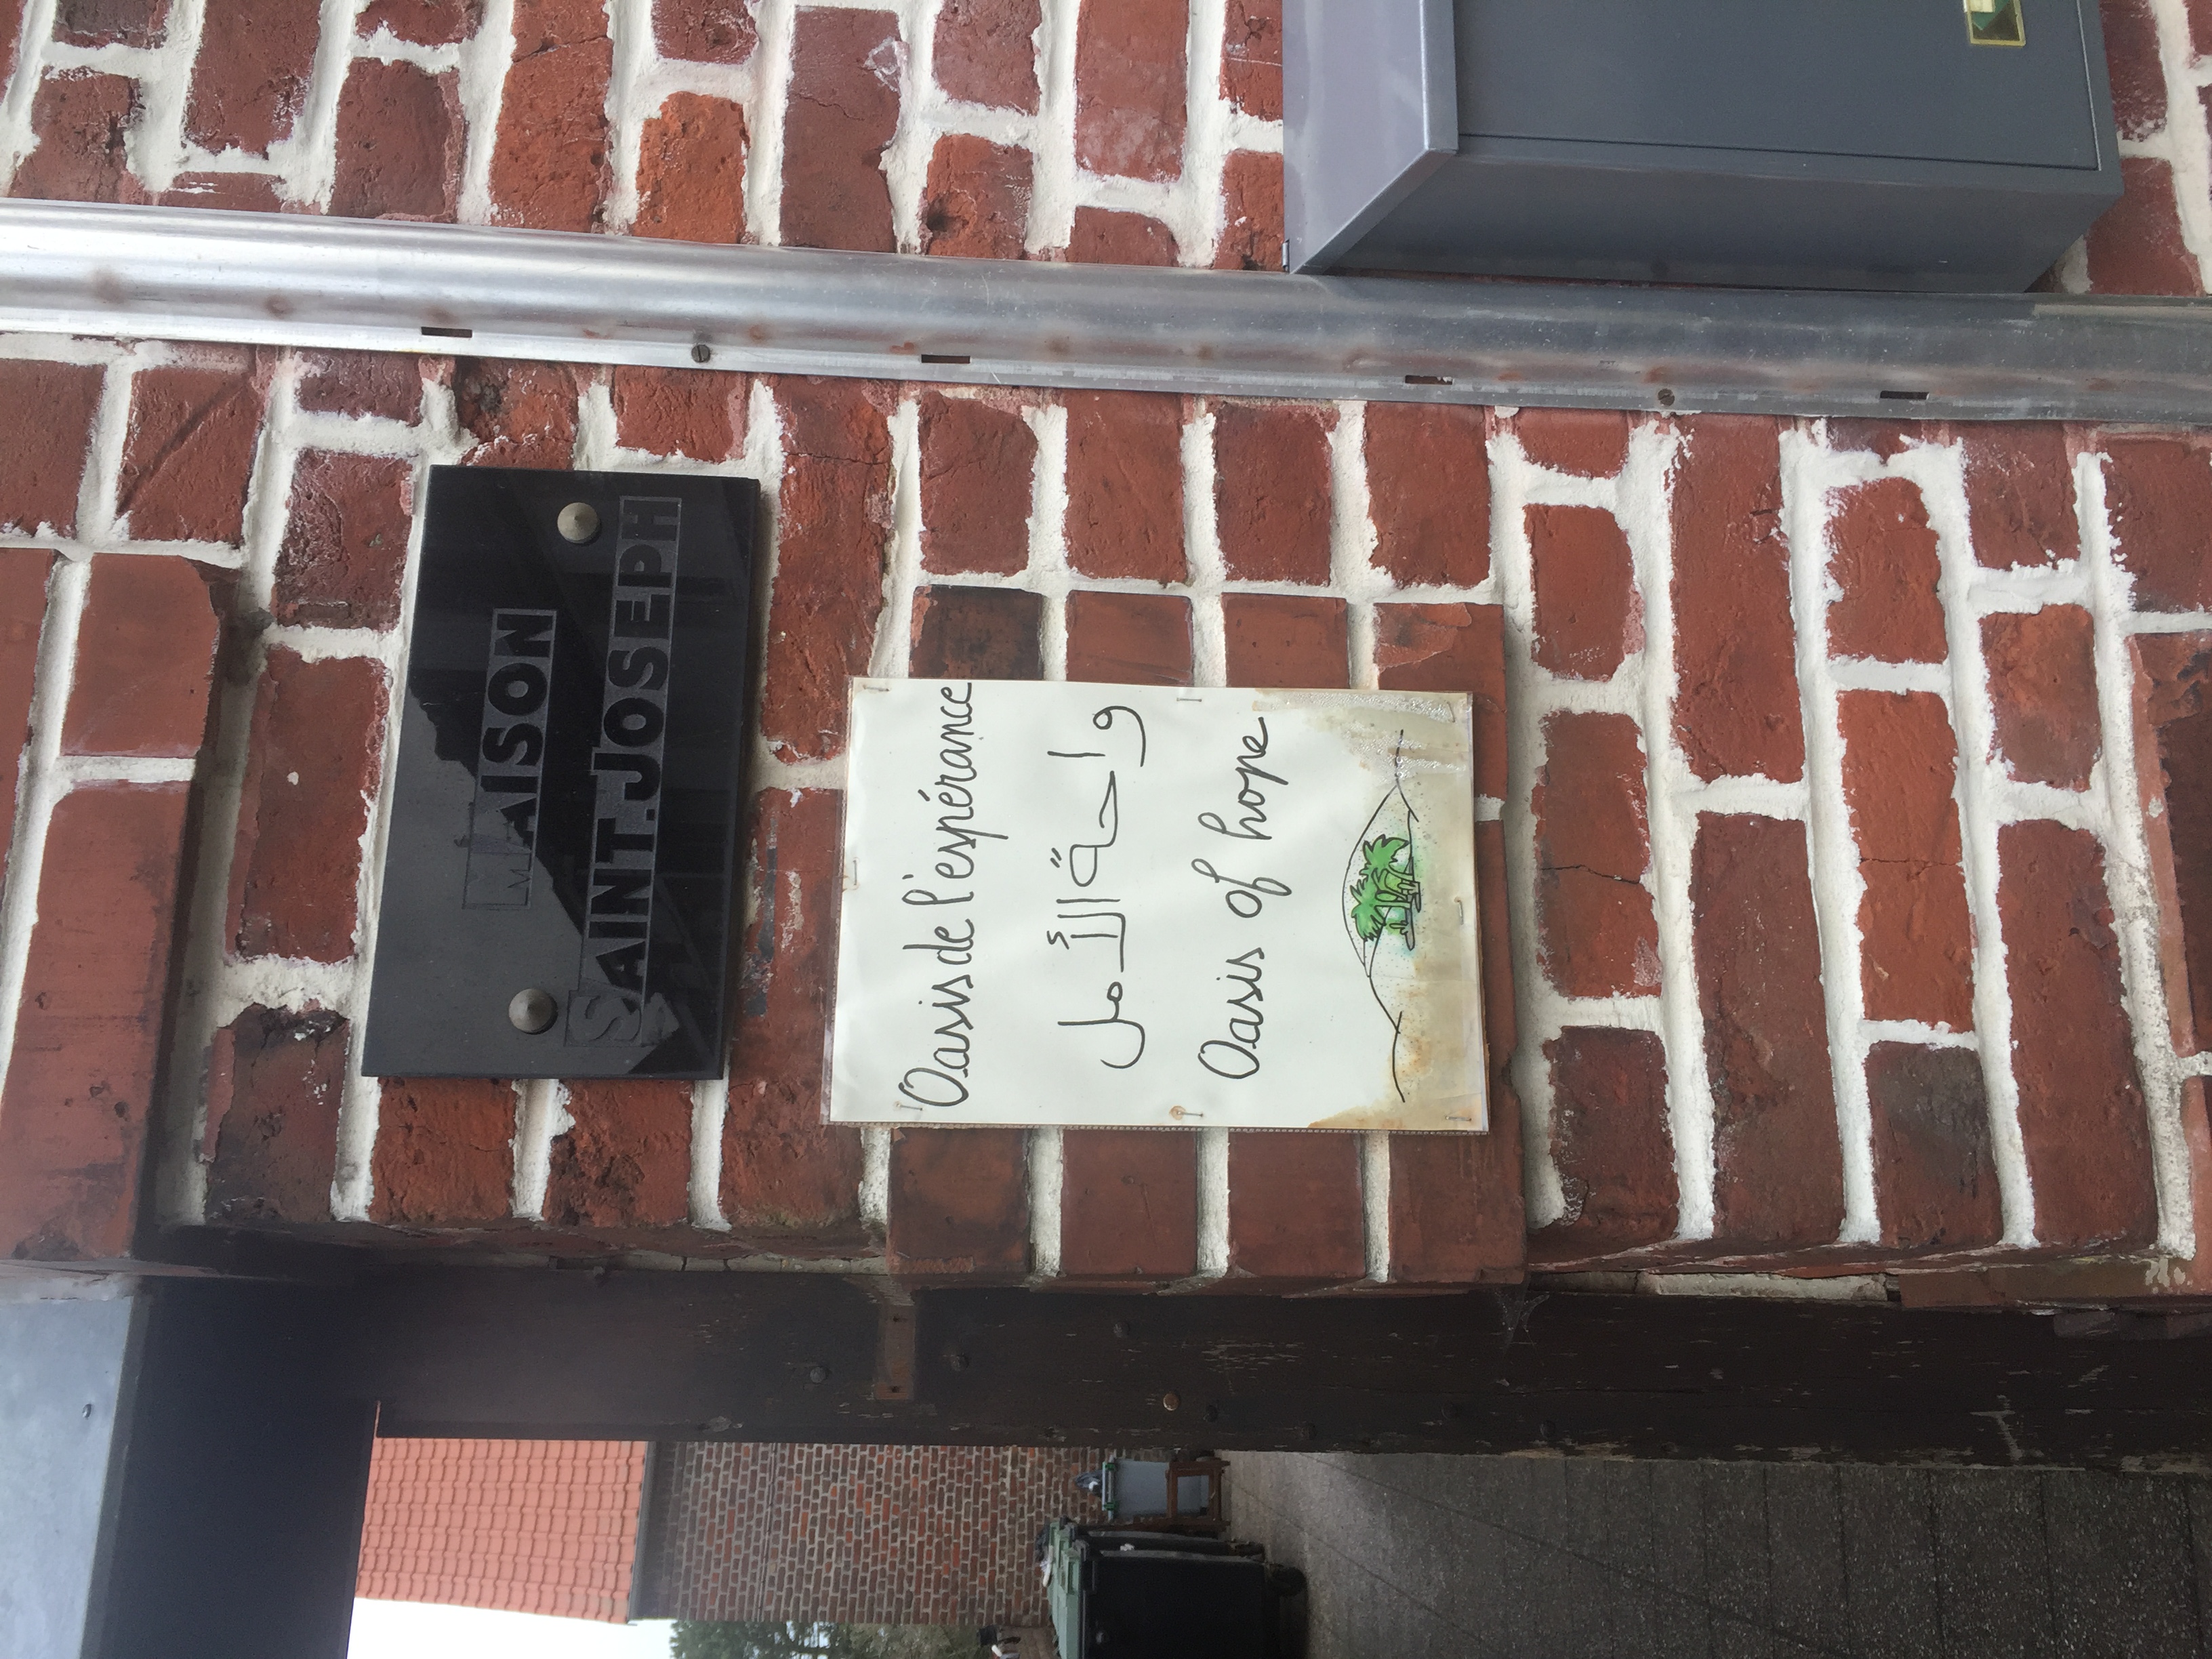 MAISON
SAINT.JOSEPH
Oasis de l'espérance
واحة الأمل
Oasis of hope